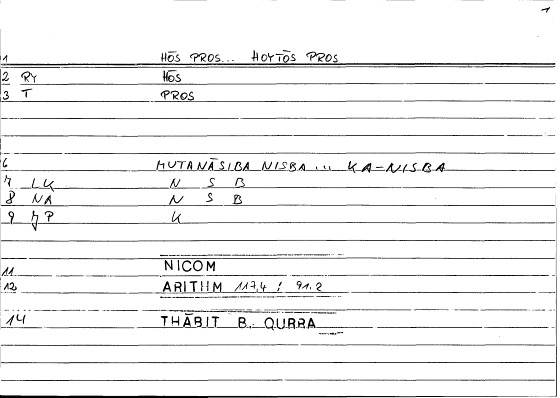 1
1 HŌS PROS... HOYTŌS PROS
2 RY HŌS
3 T PROS
6 MUTANĀSIBA NISBA ... KA-NISBA
7 LK N S B
8 NA N S B
9 K
11 NICOM
12 ARITHM 117,4 ; 91.2
14 THĀBIT B. QURRA